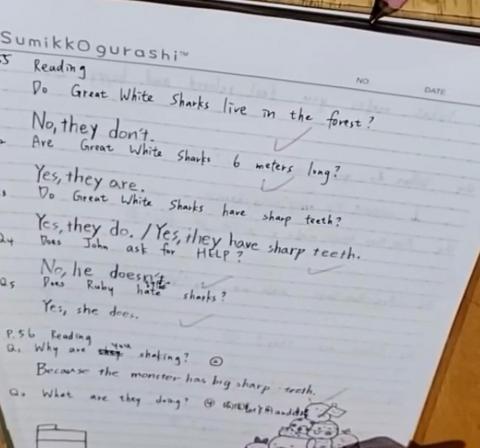 SumikkOgurashi™
NO.
DATE
Reading
Do Great White Sharks live in the forest?
No, they don't.
Are Great White Sharks 6 meters long?
Yes, they are.
Do Great White Sharks have sharp teeth?
Yes, they do. / Yes, they have sharp teeth.
Q4 Does John ask for HELP?
No, he doesn't.
Q5 Does Ruby hate sharks?
Yes, she does.
P.56 Reading
Q. Why are you shaking?
Because the monster has big sharp teeth.
Q. What are they doing?